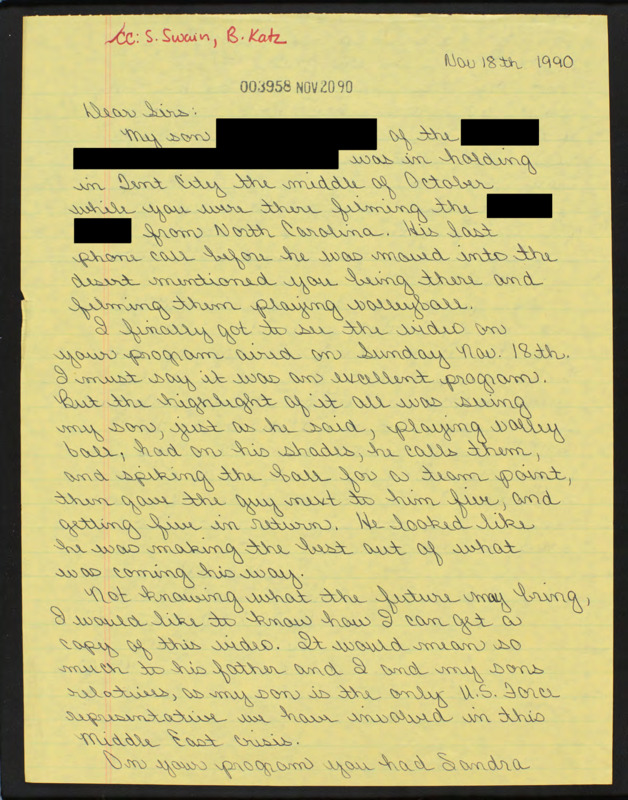 cc: S. Swain, B. Katz
Nov 18th 1990
003958 NOV20 90
Dear Sirs:
My son of the
was in holding
in Tent City the middle of October
while you were there filming the
from North Carolina. His last
phone call before he was moved into the
desert mentioned you being there and
filming them playing volleyball.
I finally got to see the video on
your program aired on Sunday Nov. 18th.
I must say it was an excellent program.
But the highlight of it all was seeing
my son, just as he said, playing volley
ball, had on his shades, he calls them,
and spiking the ball for a team point,
then gave the guy next to him five, and
getting five in return. He looked like
he was making the best out of what
was coming his way.
Not knowing what the future may bring,
I would like to know how I can get a
copy of this video. It would mean so
much to his father and I and my sons
relatives, as my son is the only U.S. Force
representative we have involved in this
Middle East crisis.
On your program you had Sandra